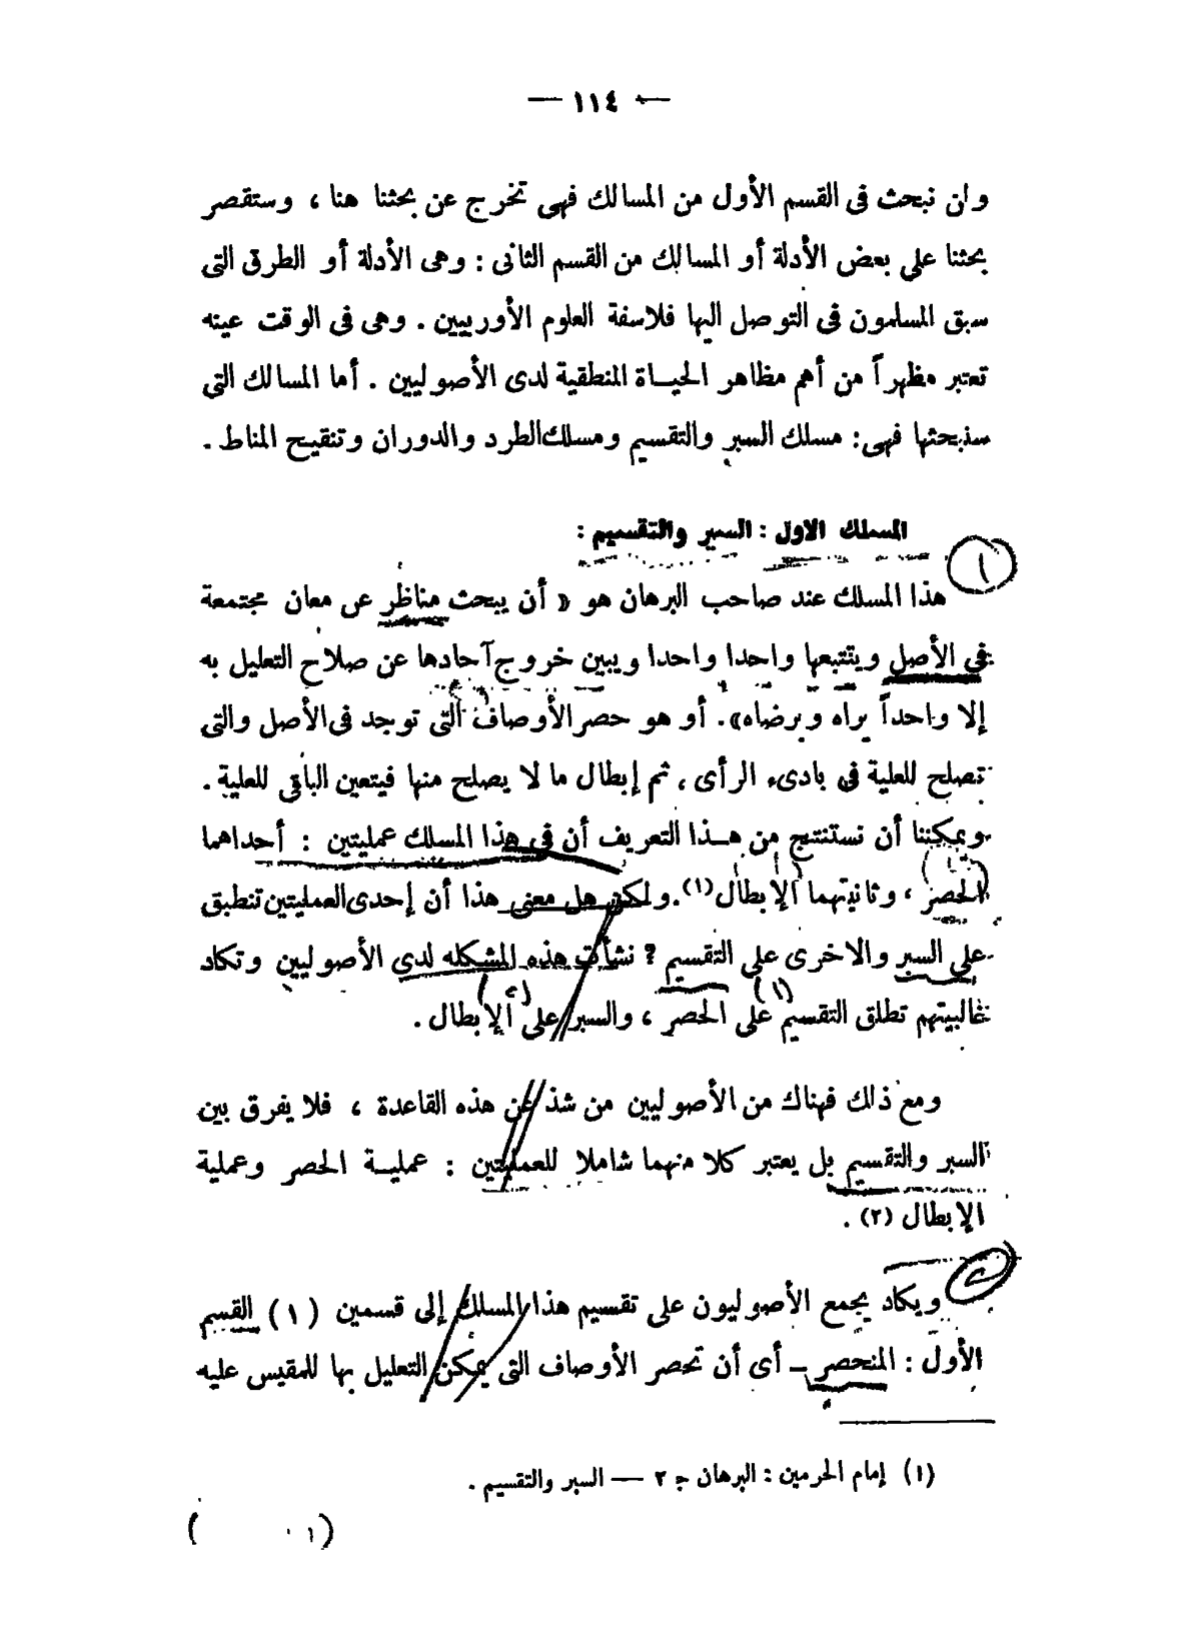 — ١١٤ —
وان نبحث فى القسم الأول من المسالك فهى تخرج عن بحثنا هنا ، وستقصر
بحثنا على بعض الأدلة أو المسالك من القسم الثانى : وهى الأدلة أو الطرق التى
سبق المسلمون فى التوصل اليها فلاسفة العلوم الأوربيين . وهى فى الوقت عينه
تعتبر مظهراً من أهم مظاهر الحياة المنطقية لدى الأصوليين . أما المسالك التى
سنبحثها فهى : مسلك السبر والتقسيم ومسلك الطرد والدوران وتنقيح المناط .
المسلك الاول : السبر والتقسيم :
١
هذا المسلك عند صاحب البرهان هو « أن يبحث مناظر عن معان مجتمعة
فى الأصل ويتتبعها واحدا واحدا ويبين خروج آحادها عن صلاح التعليل به
إلا واحداً يراه ويرضاه» . أو هو حصر الأوصاف التى توجد فى الأصل والتى
تصلح للعلية فى بادىء الرأى ، ثم إبطال ما لا يصلح منها فيتعين الباقى للعلية .
ويمكننا أن نستنتج من هذا التعريف أن فى هذا المسلك عمليتين : أحداهما
الحصر ، وثانيتهما الإبطال (١) . ولكن هل معنى هذا أن إحدى العمليتين تنطبق
على السبر والاخرى على التقسيم ؟ نشأت هذه المشكله لدى الأصوليين وتكاد
غالبيتهم تطلق التقسيم على الحصر ، والسبر على الإبطال .
(١) (٢)
ومع ذلك فهناك من الأصوليين من شذ عن هذه القاعدة ، فلا يفرق بين
السبر والتقسيم بل يعتبر كلا منهما شاملا للعمليتين : عملية الحصر وعملية
الإبطال (٢) .
٢
ويكاد يجمع الأصوليون على تقسيم هذا المسلك إلى قسمين (١) القسم
الأول : المنحصر – أى أن تحصر الأوصاف التى يمكن التعليل بها للمقيس عليه
(١) إمام الحرمين : البرهان ج ٢ — السبر والتقسيم .